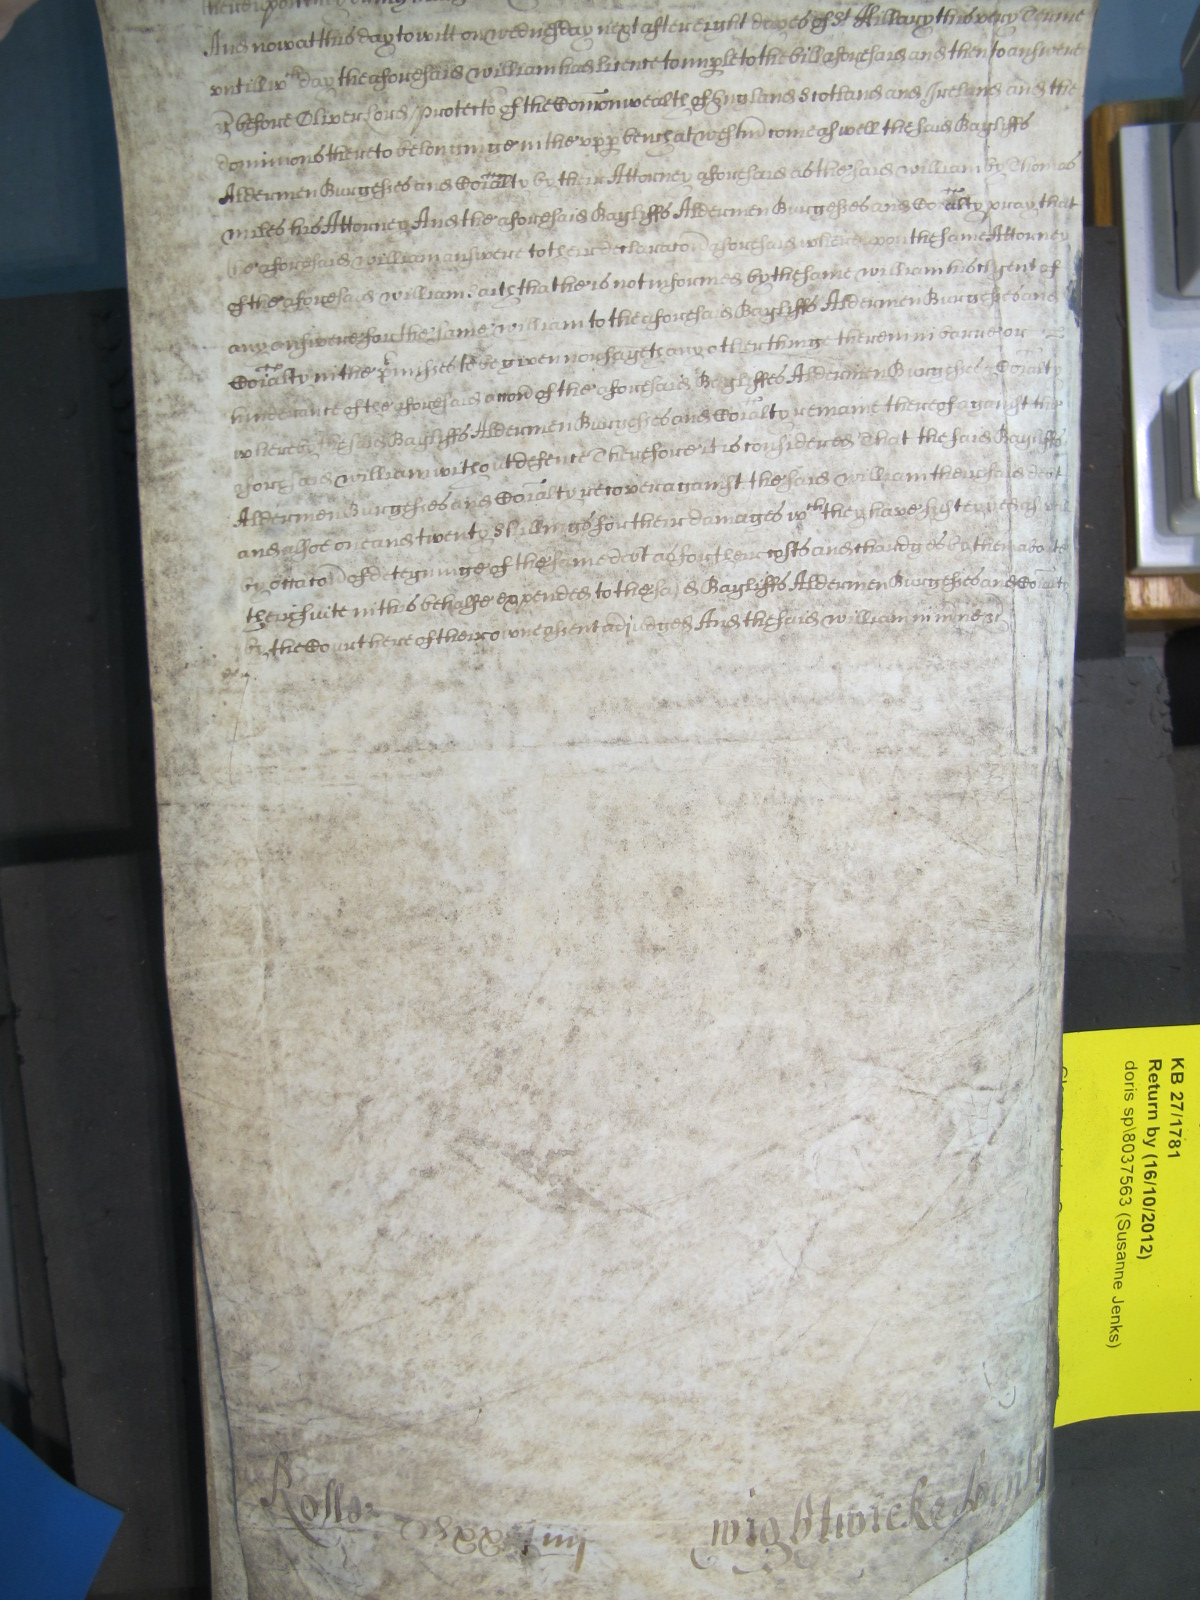 And now at this day to witt on wednesday next after eight dayes of St Hillary this very Terme
untill wch day the aforesaid william had licence to imple to the bill aforesaid and then to answere
&c before Oliver Lord Protector of the Comonwealth of England Scotland and Ireland and the
dominions thereto belonginge in the upp bench at westm come aswell the said Bayliffs
Aldermen Burgesses and Coialty by their Attorney aforesaid as the said william by Thomas
miles his Attorney And the aforesaid Bayliffs Aldermen Burgesses and Coialty pray that
the aforesaid william answere to their declaracon aforesaid whereupon the same Attorney
of the aforesaid william saith that he is not informed by the same william his clyent of
any answere for the same william to the aforesaid Bayliffs Aldermen Burgesses and
Coialty in the pmisses to be given nor sayeth any other thinge therein in barre or
hinderance of the aforesaid accon of the aforesaid Bayliffs Aldermen Burgesses Coialty
whereby the said Bayliffs Aldermen Burgesses and Coialty remaine thereof against the
aforesaid william without defence Therefore it is considered That the said Bayliffs
Aldermen Burgesses and Coialty recover against the said william their said debt
and alsoe one and twenty shillings for their damages wch they have susteyned as well
by occacon of deteyninge of the same debt as for their costs and chardges by them aboute
their suite in this behalfe expended to the said Bayliffs Aldermen Burgesses and Coialty
by the Court here of their owne assent adjudged And the said william in m &c
Rollo
wightwicke
KB 27/1781
Return by (16/10/2012)
doris sp\8037563 (Susanne Jenks)